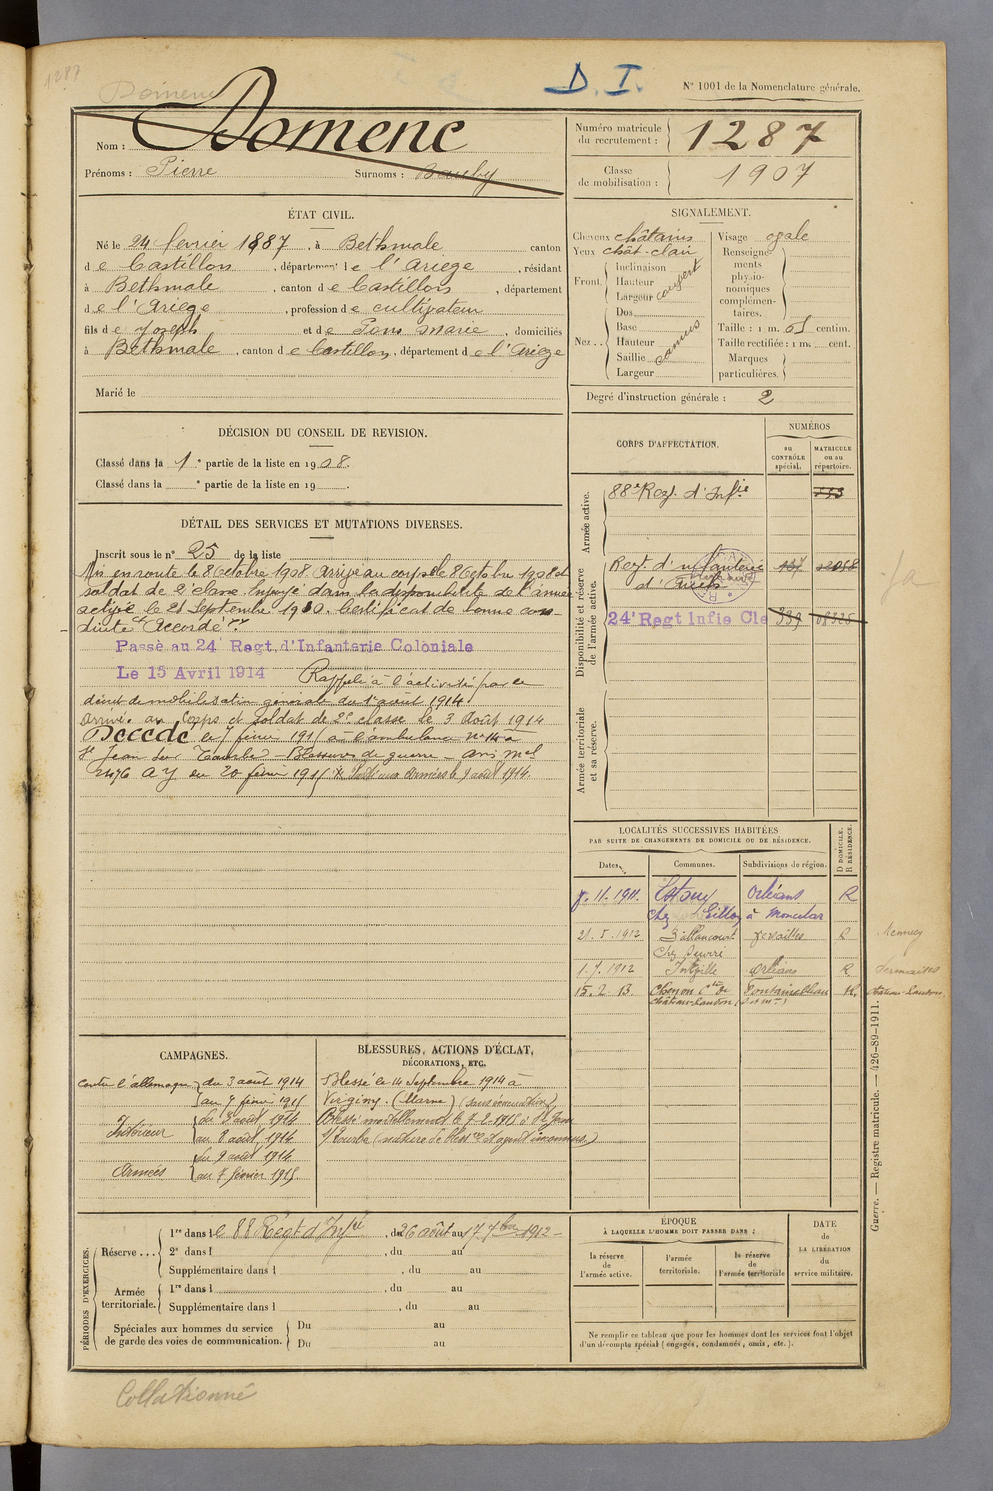 1287
Domenc
D. I.
N° 1001 de la Nomenclature générale.
Nom : Domenc
Prénoms : Pierre Surnoms :
Numéro matricule du recrutement : 1287
Classe de mobilisation : 1907
ÉTAT CIVIL.
Né le 24 février 1887, à Bethmale canton
de Castillon, département de l'Ariège, résidant
à Bethmale, canton de Castillon, département
de l'Ariège, profession de cultivateur
fils de Joseph et de Pons Marie, domiciliés
à Bethmale, canton de Castillon, département de l'Ariège
Marié le
SIGNALEMENT.
Cheveux châtains
Yeux chât-clair
Front. Inclinaison
Hauteur
Largeur
Nez .. Dos
Base
Hauteur
Saillie camus
Largeur
Visage ovale
Renseignements physionomiques complémentaires.
Taille : 1 m. 65 centim.
Taille rectifiée : 1 m. cent.
Marques particulières.
Degré d'instruction générale : 2
DÉCISION DU CONSEIL DE REVISION.
Classé dans la 1e partie de la liste en 1908.
Classé dans la e partie de la liste en 19 .
CORPS D'AFFECTATION.
NUMÉROS
au CONTRÔLE spécial.
MATRICULE ou au répertoire.
Armée active.
88e Regt. d'Infie
Disponibilité et réserve de l'armée active.
Regt. d'infanterie
24e Regt Infie Cle 339
Armée territoriale et sa réserve.
DÉTAIL DES SERVICES ET MUTATIONS DIVERSES.
Inscrit sous le n° 25 de la liste
Mis en route le 8 Octobre 1908. Arrivé au corps le 8 Octobre 1908 et
soldat de 2e classe. Envoyé dans la disponibilité de l'armée
active le 25 Septembre 1910. Certificat de bonne con-
duite "Accordé".
Passé au 24e Regt. d'Infanterie Coloniale
Le 15 Avril 1914 Rappelé à l'activité par le
décret de mobilisation générale du 1er août 1914.
Arrivé au Corps et soldat de 2e classe le 3 Août 1914
Décédé le 7 février 1915 à l'ambulance n°
St Jean sur Tourbe - Blessures de guerre - avis mel
du 20 février 1915 * Parti aux Armées le 9 août 1914.
LOCALITÉS SUCCESSIVES HABITÉES
PAR SUITE DE CHANGEMENTS DE DOMICILE OU DE RÉSIDENCE.
Dates. Communes. Subdivisions de région. D DOMICILE. R RÉSIDENCE.
11.1911. Orléans R
chez
21.5.1912 Billancourt Versailles R
1.7.1912 Intville Orléans R
15.2.13. Chenou Cton de Fontainebleau R.
Château-Landon (S et Mne)
Mennecy
Sermaises
Château-Landon.
CAMPAGNES.
contre l'allemagne du 3 août 1914
au 7 février 1915
Intérieur du 3 août 1914
au 8 août 1914
Armées du 9 août 1914
au 7 février 1915.
BLESSURES, ACTIONS D'ÉCLAT, DÉCORATIONS, ETC.
Blessé le 14 Septembre 1914 à
Virginy. (Marne) (sans évacuation)
Blessé mortellement le 7-2-1915 à St Jean
s/Tourbe (nature de bless. et agent inconnus.)
PÉRIODES D'EXERCICES.
Réserve ... 1re dans le 88 Régt d'Infie, du 26 août au 17 7bre 1912
2e dans l , du au
Supplémentaire dans l , du au
Armée territoriale. 1re dans l , du au
Supplémentaire dans l , du au
Spéciales aux hommes du service de garde des voies de communication. Du au
Du au
EPOQUE
À LAQUELLE L'HOMME DOIT PASSER DANS :
la réserve de l'armée active.
l'armée territoriale.
la réserve de l'armée territoriale
DATE DE LA LIBÉRATION du service militaire.
Ne remplir ce tableau que pour les hommes dont les services font l'objet
d'un décompte spécial (engagés, condamnés, omis, etc.).
Guerre. — Registre matricule. — 426-89-1911.
Collationné